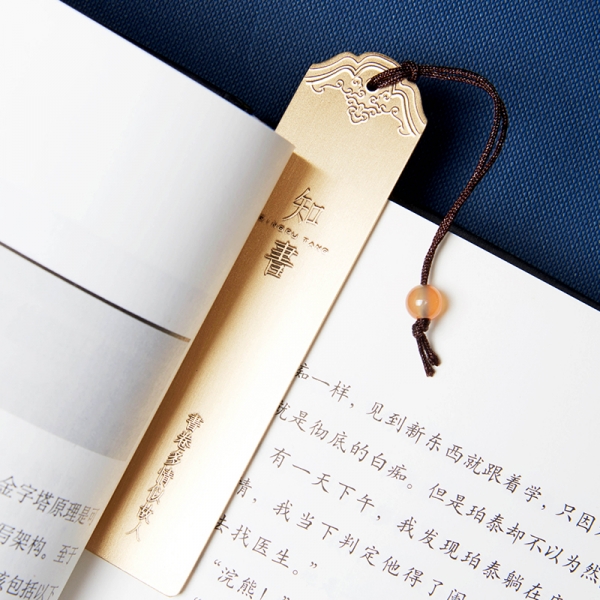 知
書
書卷多情似故人
金字塔原理是可
写架构。至于
该包括以下
一样，见到新东西就跟着学，只因
就是彻底的白痴。但是珀泰却不以为然
有一天下午，我发现珀泰躺在
情，我当下判定他得了
去找医生。”
“浣熊！